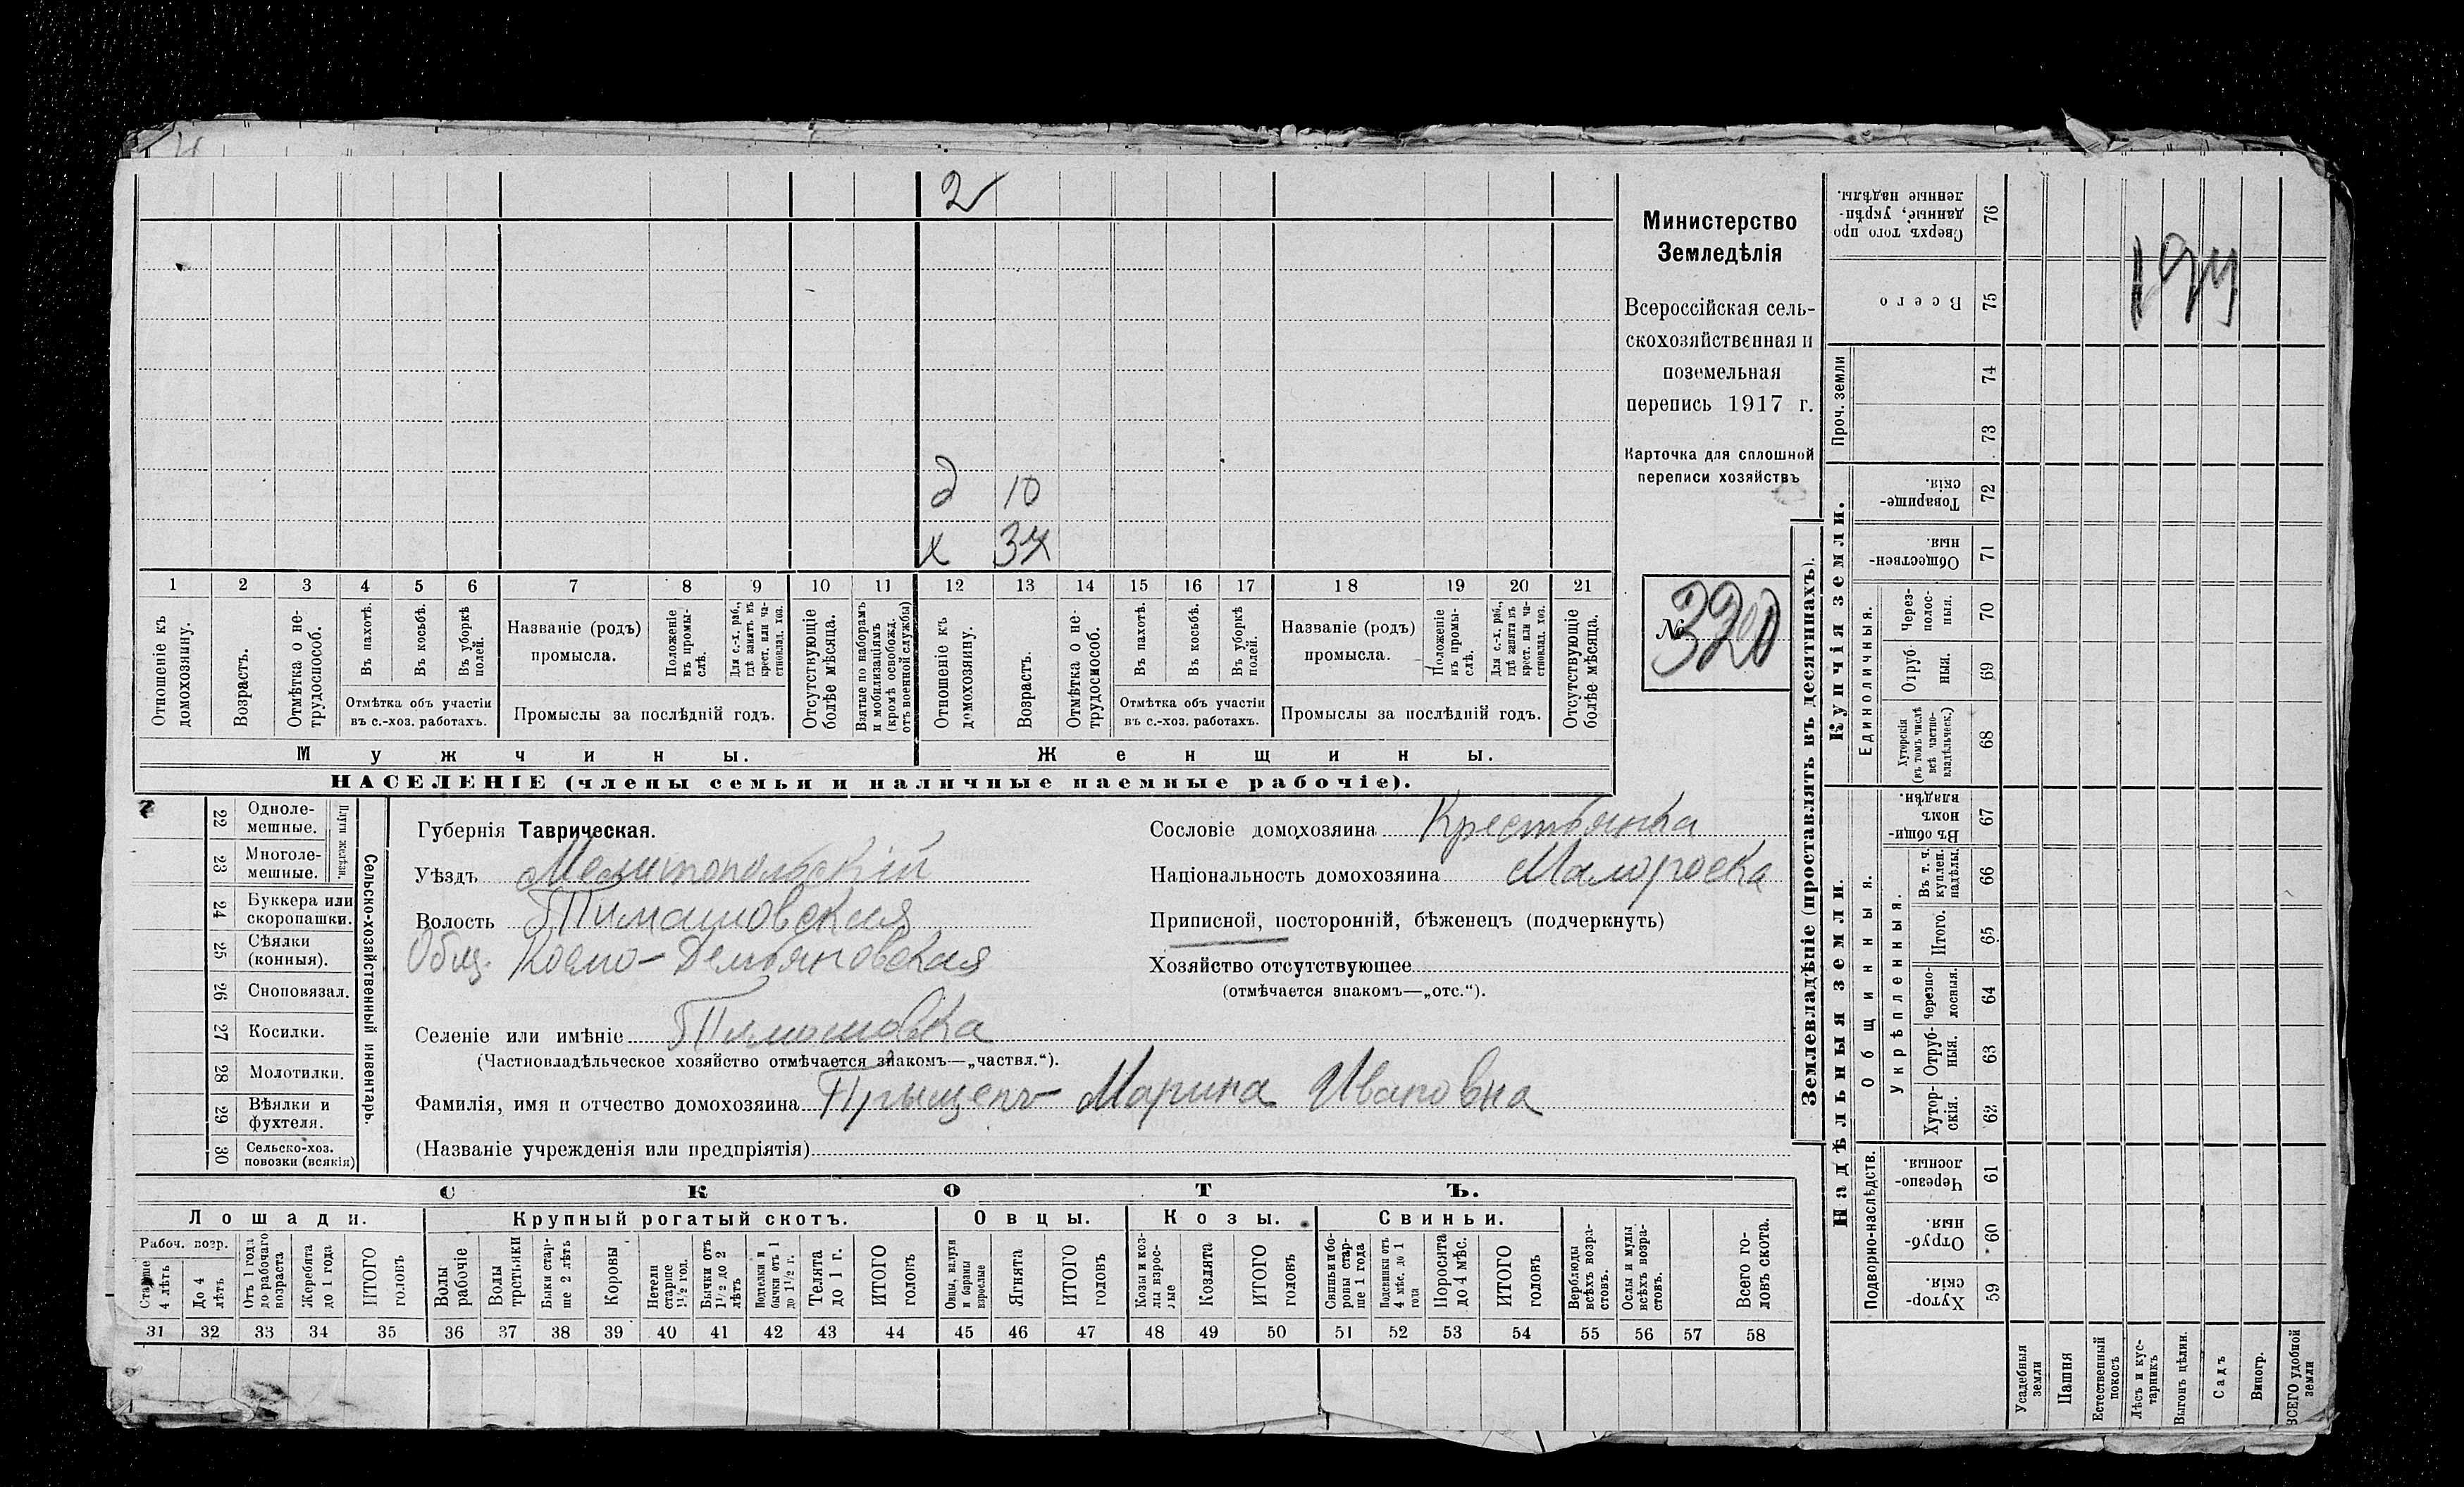 2
д 10
х 37
1 2 3 4 5 6 7 8 9 10 11 12 13 14 15 16 17 18 19 20 21
Отношеніе къ домохозяину.
Возрастъ.
Отмѣтка о не-трудоспособ.
Въ пахотѣ.
Въ косьбѣ.
Въ уборкѣ полей.
Отмѣтка объ участіи
въ с.-хоз. работахъ.
Названіе (родъ)
промысла.
Положеніе въ промы-слѣ.
Для с.-х. раб., гдѣ занятъ въ крест. или ча-стновлад. хоз.
Промыслы за послѣдній годъ.
Отсутствующіе болѣе мѣсяца.
Взятые по наборамъ и мобилизаціямъ (кромѣ освобожд. отъ военной службы)
Отношеніе къ домохозяину.
Возрастъ.
Отмѣтка о не-трудоспособ.
Въ пахотѣ.
Въ косьбѣ.
Въ уборкѣ полей.
Отмѣтка объ участіи
въ с.-хоз. работахъ.
Названіе (родъ)
промысла.
Положеніе въ промы-слѣ.
Для с.-х. раб., гдѣ занята въ крест. или ча-стновлад. хоз.
Промыслы за послѣдній годъ.
Отсутствующіе болѣе мѣсяца.
Мужчины.
Женщины.
НАСЕЛЕНІЕ (члены семьи и наличные наемные рабочіе).
Министерство
Земледѣлія
Всероссійская сель-
скохозяйственная и
поземельная
перепись 1917 г.
Карточка для сплошной
переписи хозяйствъ
№ 320
22 Одноле-мешные.
23 Многоле-мешные.
Плуги желѣзн
24 Буккера или скоропашки.
25 Сѣялки (конныя).
26 Сноповязал.
27 Косилки.
28 Молотилки.
29 Вѣялки и фухтеля.
30 Сельско-хоз. повозки (всякія)
Сельско-хозяйственный инвентарь.
Губернія Таврическая.
Уѣздъ Мелитопольскій
Волость Тимашовская
Общ. Космо-Демьяновская
Селеніе или имѣніе Тимашовка
(Частновладѣльческое хозяйство отмѣчается знакомъ—„частвл.“).
Фамилія, имя и отчество домохозяина Прыщепъ Марина Ивановна
(Названіе учрежденія или предпріятія)
Сословіе домохозяина Крестьянка
Національность домохозяина Малороска
Приписной, посторонній, бѣженецъ (подчеркнуть)
Хозяйство отсутствующее
(отмѣчается знакомъ—„отс.“).
СКОТЪ.
Лошади. Крупный рогатый скотъ. Овцы. Козы. Свиньи.
Рабоч. возр.
Старше 4 лѣтъ
До 4 лѣтъ
Отъ 1 года до рабочаго возраста
Жеребята до 1 года
ИТОГО головъ
Волы рабочіе
Волы третьяки
Быки стар-ше 2 лѣтъ
Коровы
Нетели старше 1½ год.
Бычки отъ 1½ до 2 лѣтъ
Подтелки и бычки отъ 1 до 1½ г.
Телята до 1 г.
ИТОГО головъ
Овцы, валухи и бараны взрослые
Ягнята
ИТОГО головъ
Козы и коз-лы взрос-лые
Козлята
ИТОГО головъ
Свиньи и бо-ровы стар-ше 1 года
Подсвинки отъ 4 мѣс. до 1 года
Поросята до 4 мѣс.
ИТОГО головъ
Верблюды всѣхъ возра-стовъ.
Ослы и мулы всѣхъ возра-стовъ.
Всего го-ловъ скота.
31 32 33 34 35 36 37 38 39 40 41 42 43 44 45 46 47 48 49 50 51 52 53 54 55 56 57 58
Землевладѣніе (проставлять въ десятинахъ).
Надѣльныя земли.
Купчія земли.
Проч. земли
Подворно-наслѣдств.
Общинныя.
Укрѣпленныя.
Единоличныя.
Сверхъ того про данные, укрѣп-ленные надѣлы. 76
Всего 75
74
73
Товарище-скія. 72
Обществен-ныя. 71
Через-полос-ныя. 70
Отруб-ныя. 69
Хуторскія (въ томъ числѣ всѣ частно-владѣльческ.) 68
Въ общи-номъ владѣн. 67
Въ т. ч. куплен. надѣлы. 66
Итого. 65
Черезпо-лосныя. 64
Отруб-ныя. 63
Хутор-скія. 62
Черезпо-лосныя. 61
Отруб-ныя. 60
Хутор-скія. 59
Усадебныя земли
Пашня
Естественный покосъ
Лѣсъ и кус-тарникъ
Выгонъ цѣлин.
Садъ
Виногр.
ВСЕГО удобной земли